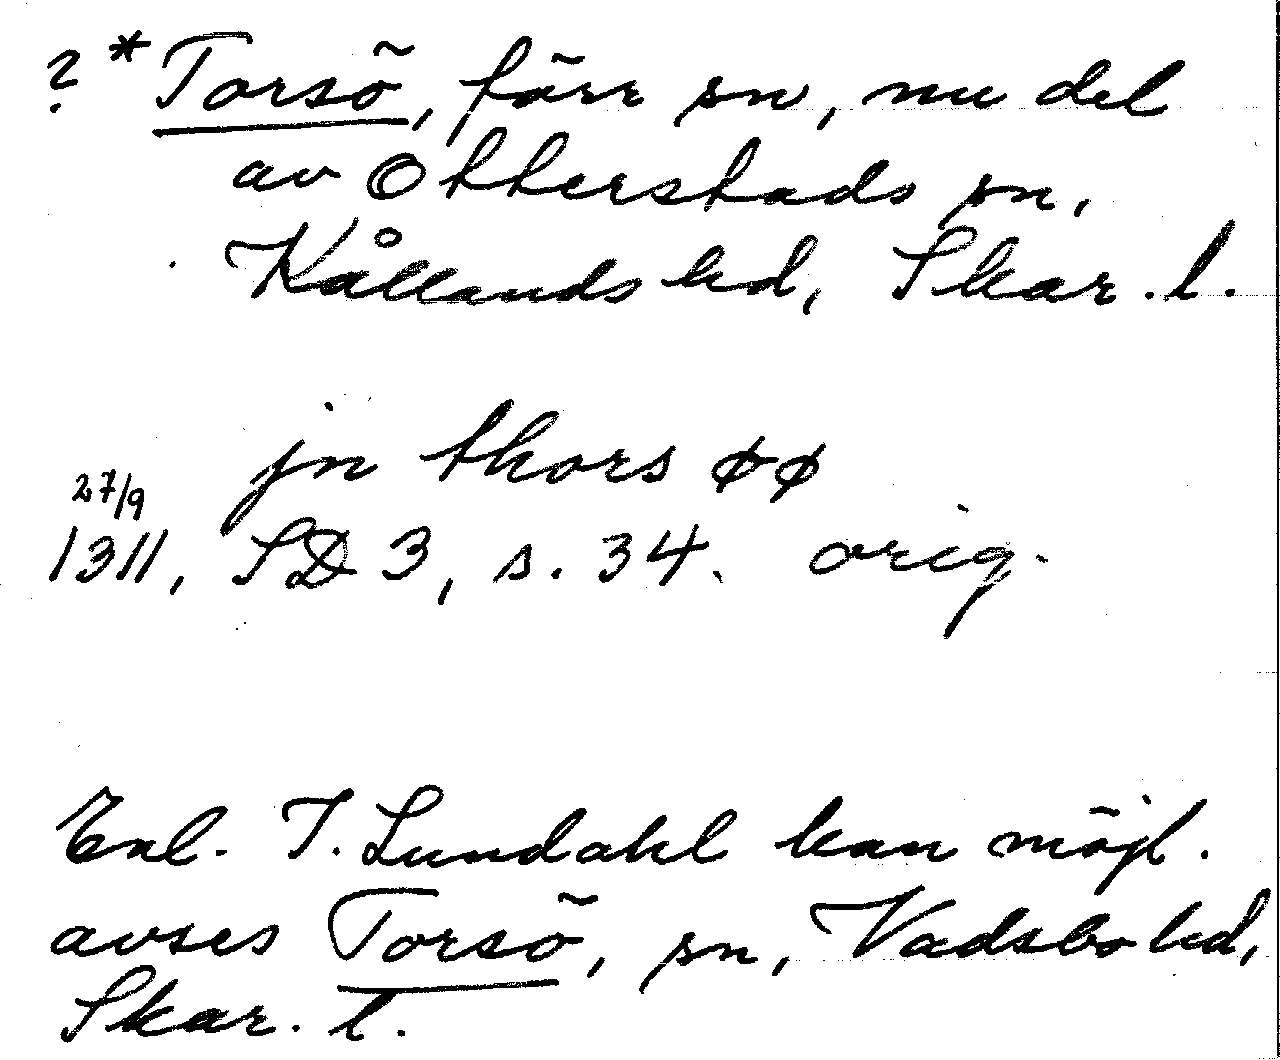 ? * Torsö, förr sn, nu del
av Otterstads sn,
Kållands hd, Skar. l.
jn thors øø
27/9
1311, SD 3, s. 34. orig.
Enl. I. Lundahl kan möjl.
avses Torsö, sn, Vadsbo hd,
Skar. l.